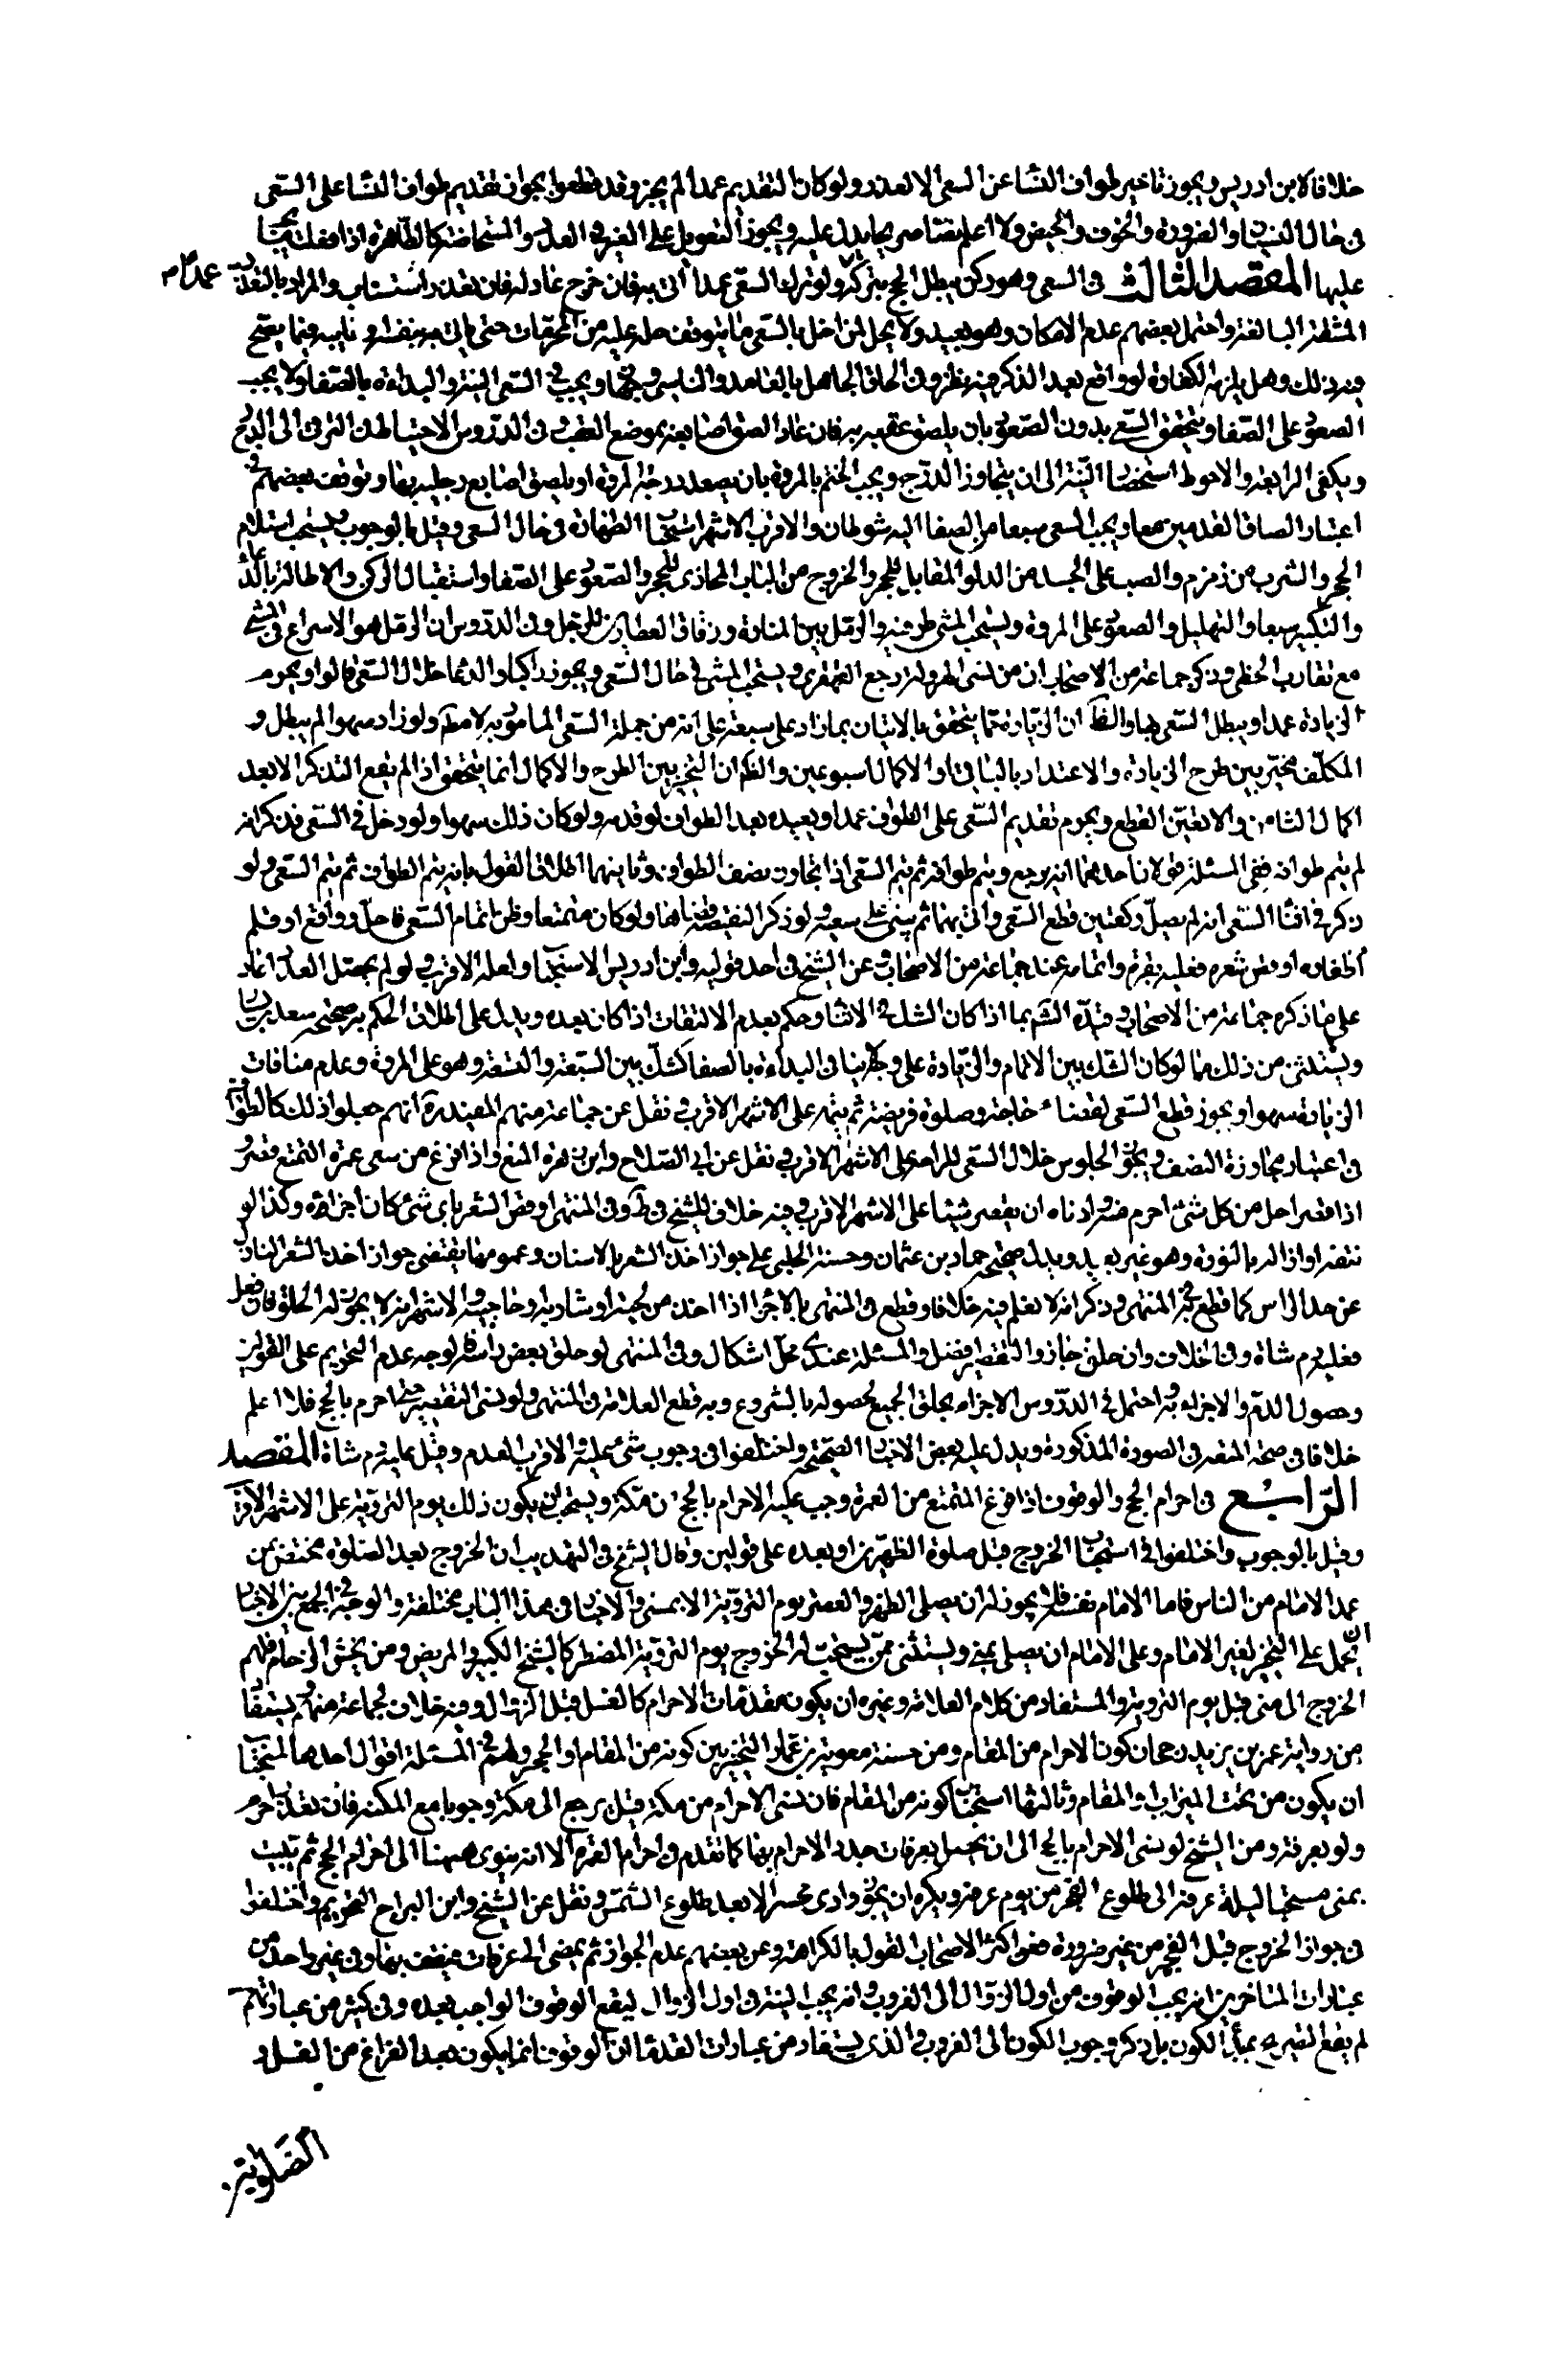 خلافا لابن ادريس ويجوز تاخير طواف النسا عن السعى الا لعذر ولو كان التقديم عمدا لم يجز وقد قطعوا بجواز تقديم طواف النسا على السعى
فى حال النسيان والضرورة والخوف والحيض ولا اعلم نصا صريحا يدل عليه ويجوز التعويل على الغير فى العدد والمستحاضة كالطاهرة اذا فعلت ما يجب
عليها المقصد الثالث فى السعى وهو ركن يبطل الحج بتركه ولو ترك السعى عمدا اتى به فان خرج عاد له فان تعذر استناب والمراد بالتعذر
المشقة البالغة واحتمل بعضهم عدم الامكان وهو بعيد ولا يحل لمن اخل بالسعى ما يتوقف حله عليه من المحرمات حتى ياتى به بنفسه او نايبه فيما يصح
فيه ذلك وهل يلزمه الكفارة لو واقع بعد الذكر فيه نظر وفى الحاق الجاهل بالعامد والناسى وجهان ويجب فى السعى النية والبداءة بالصفا ولا يجب
الصعود على الصفا ويتحقق السعى بدون الصعود بان يلصق عقبيه به فان عاد الصق اصابعه بموضع العقب وفى الدروس الاحتياط الترقى الى الدرج
ويكفى الرابعة والاحوط استحضار النية الى ان يتجاوز الدرج ويجب الختم بالمروة بان يصعد درجة المروة او يلصق اصابع رجليه بها وتوقف بعضهم فى
اعتبار الصاق القدمين معا ويجب السعى سبعا من الصفا اليه شوطان والاقرب الاشهر استحباب الطهارة فى حال السعى وقيل بالوجوب ويستحب استلام
الحجر والشرب من زمزم والصب على الجسد من الدلو المقابل للحجر والخروج من الباب المحاذى للحجر والصعود على الصفا واستقبال الركن والاطالة بالدعاء
والتكبير سبعا والتهليل والصعود على المروة ويستحب المشى طرفيه والرمل بين المنارة وزقاق العطارين للرجل وفى الدروس ان الرمل هو الاسراع فى المشى
مع تقارب الخطى وذكر جماعة من الاصحاب ان من نسى الهرولة رجع القهقرى ويستحب المشى فى حال السعى ويجوز راكبا والدعا خلال السعى قالوا ويحرم
الزيادة عمدا ويبطل السعى بها والظ ان الزيادة انما يتحقق بالاتيان بما زاد على سبعة على انه من جملة السعى المامور به لا مط ولو زاد سهوا لم يبطل و
المكلف مخير بين طرح الزيادة والاعتداد بالباقى او الاكمال اسبوعين والظ ان التخيير بين الطرح والاكمال انما يتحقق اذا لم يقع التذكر الا بعد
اكمال الثامن والا تعين القطع ويحرم تقديم السعى على الطواف عمدا ويعيده بعد الطواف لو قدمه ولو كان ذلك سهوا ولو دخل فى السعى فذكر انه
لم يتم طوافه ففى المسئلة قولان احدهما انه يرجع ويتم طوافه ثم يتم السعى اذا تجاوز نصف الطواف وثانيهما اطلاق القول بانه يتم الطواف ثم يتم السعى ولو
ذكر فى اثنا السعى انه لم يصل ركعتين قطع السعى واتى بهما ثم يبنى على سعيه ولو ذكر النقيصة قضاها ولو كان متمتعا وظن اتمام السعى فاحل وواقع او قلم
اظفاره او قص شعره فعليه بقرة واتمامه عند جماعة من الاصحاب وعن الشيخ فى احد قوليه وابن ادريس الاستحباب ولعله الاقرب ولو لم يحصل العدد اعاد
على ما ذكره جماعة من الاصحاب وقيده الش بما اذا كان الشك فى الاثنا وحكم بعدم الالتفات اذا كان بعده ويدل على اطلاق الحكم به صحيحة سعد بن يسار
ويستثنى من ذلك ما لو كان الشك بين الاتمام والزيادة على وجه لا ينافى البداءة بالصفا كشك بين السبعة والتسعة وهو على المروة وعدم منافات
الزيادة سهوا ويجوز قطع السعى لقضاء حاجة وصلوة فريضة ثم يتمه على الاشهر الاقرب ونقل عن جماعة منهم المفيد ره انهم جعلوا ذلك كالطواف
فى اعتبار مجاوزة النصف ويجوز الجلوس خلال السعى للراحة على الاشهر الاقرب ونقل عن ابى الصلاح وابن زهرة المنع واذا فرغ من سعى عمرة التمتع قصر و
اذا قصر احل من كل شئ احرم منه وادناه ان يقصر شيئا على الاشهر الاقرب وفيه خلاف للشيخ فى ط وفى المنتهى او قص الشعر باى شئ كان اجزاه وكذا لو
نتفه او ازاله بالنورة وهو غير بعيد ويدل صحيحة حماد بن عثمان وحسنة الحلبى على جواز اخذ الشعر بالاسنان وعمومهما يقتضى جواز اخذ الشعر النازل
عن حد الراس كما قطع به فى المنتهى وذكر انه لا نعلم فيه خلافا وقطع فى المنتهى بالاجزا اذا اخذ من لحيته او شاربه او حاجبيه والاشهر انه لا يجوز له الحلق فان فعل
فعليه دم شاة وفى الخلاف وان حلق جاز والتقصير افضل والمسئلة عندى محل اشكال وفى المنتهى لو حلق بعض راسه فالوجه عدم التحريم على القولين
وحصول الدم والاجزاء به واحتمل فى الدروس الاجزاء بحلق الجميع لحصوله بالشروع وبه قطع العلامة فى المنتهى ولو نسى التقصير حتى احرم بالحج فلا اعلم
خلافا فى صحة المتعة فى الصورة المذكورة ويدل عليه بعض الاخبار الصحيحة واختلفوا فى وجوب شئ عليه والاقرب العدم وقيل عليه دم شاة المقصد
الرابع فى احرام الحج والوقوف اذا فرغ المتمتع من العمرة وجب عليه الاحرام بالحج من مكة ويستحب ان يكون ذلك يوم التروية على الاشهر الاقرب
وقيل بالوجوب واختلفوا فى استحباب الخروج قبل صلوة الظهرين او بعده على قولين وقال الشيخ فى التهذيب ان الخروج بعد الصلوة مختص بمن
عدا الامام من الناس فاما الامام نفسه فلا يجوز له ان يصلى الظهر والعصر يوم التروية الا بمنى والاخبار فى هذا الباب مختلفة والوجه فى الجمع بين الاخبار
ان يحمل على التخيير لغير الامام وعلى الامام ان يصلى بمنى ويستثنى ممن يستحب له الخروج يوم التروية المضطر كالشيخ الكبير والمريض ومن يخشى الزحام فلهم
الخروج الى منى قبل يوم التروية والمستفاد من كلام العلامة وغيره ان يكون مقدمات الاحرام كالغسل قبل الزوال وفيه خلاف لجماعة منهم ويستفاد
من رواية عمر بن يزيد رجحان كون الاحرام من المقام ومن حسنة معوية بن عمار التخيير بين كونه من المقام او الحجر ولهم فى المسئلة اقوال احدها استحباب
ان يكون من تحت الميزاب او المقام وثالثها استحباب كونه من المقام فان نسى الاحرام من مكة قيل يرجع الى مكة وجوبا مع المكنة فان تعذر احرم
ولو بعرفة ومن الشيخ لو نسى الاحرام بالحج الى ان يحصل بعرفات جدد الاحرام بها كما تقدم فى احرام العمرة الا انه ينوى ههنا احرام الحج ثم يبيت
بمنى مستحبا ليلة عرفة الى طلوع الفجر من يوم عرفة ويكره ان يجوز وادى محسر الا بعد طلوع الشمس ونقل عن الشيخ وابن البراج التحريم واختلفوا
فى جواز الخروج قبل الفجر من غير ضرورة فعن اكثر الاصحاب القول بالكراهة وعن بعضهم عدم الجواز ثم يمضى الى عرفات فيقف بها وفى غير واحد من
عبارات المتاخرين انه يجب الوقوف من اول الزوال الى الغروب وانه يجب النية فى اول الزوال ليقع الوقوف الواجب بعده وفى كثير من عباراتهم
لم يقع التصريح بمبدأ الكون بل ذكر وجوب الكون الى الغروب والذى يستفاد من عبارات القدما ان الوقوف انما يكون بعد الفراغ من الغسل و
الصلوتين